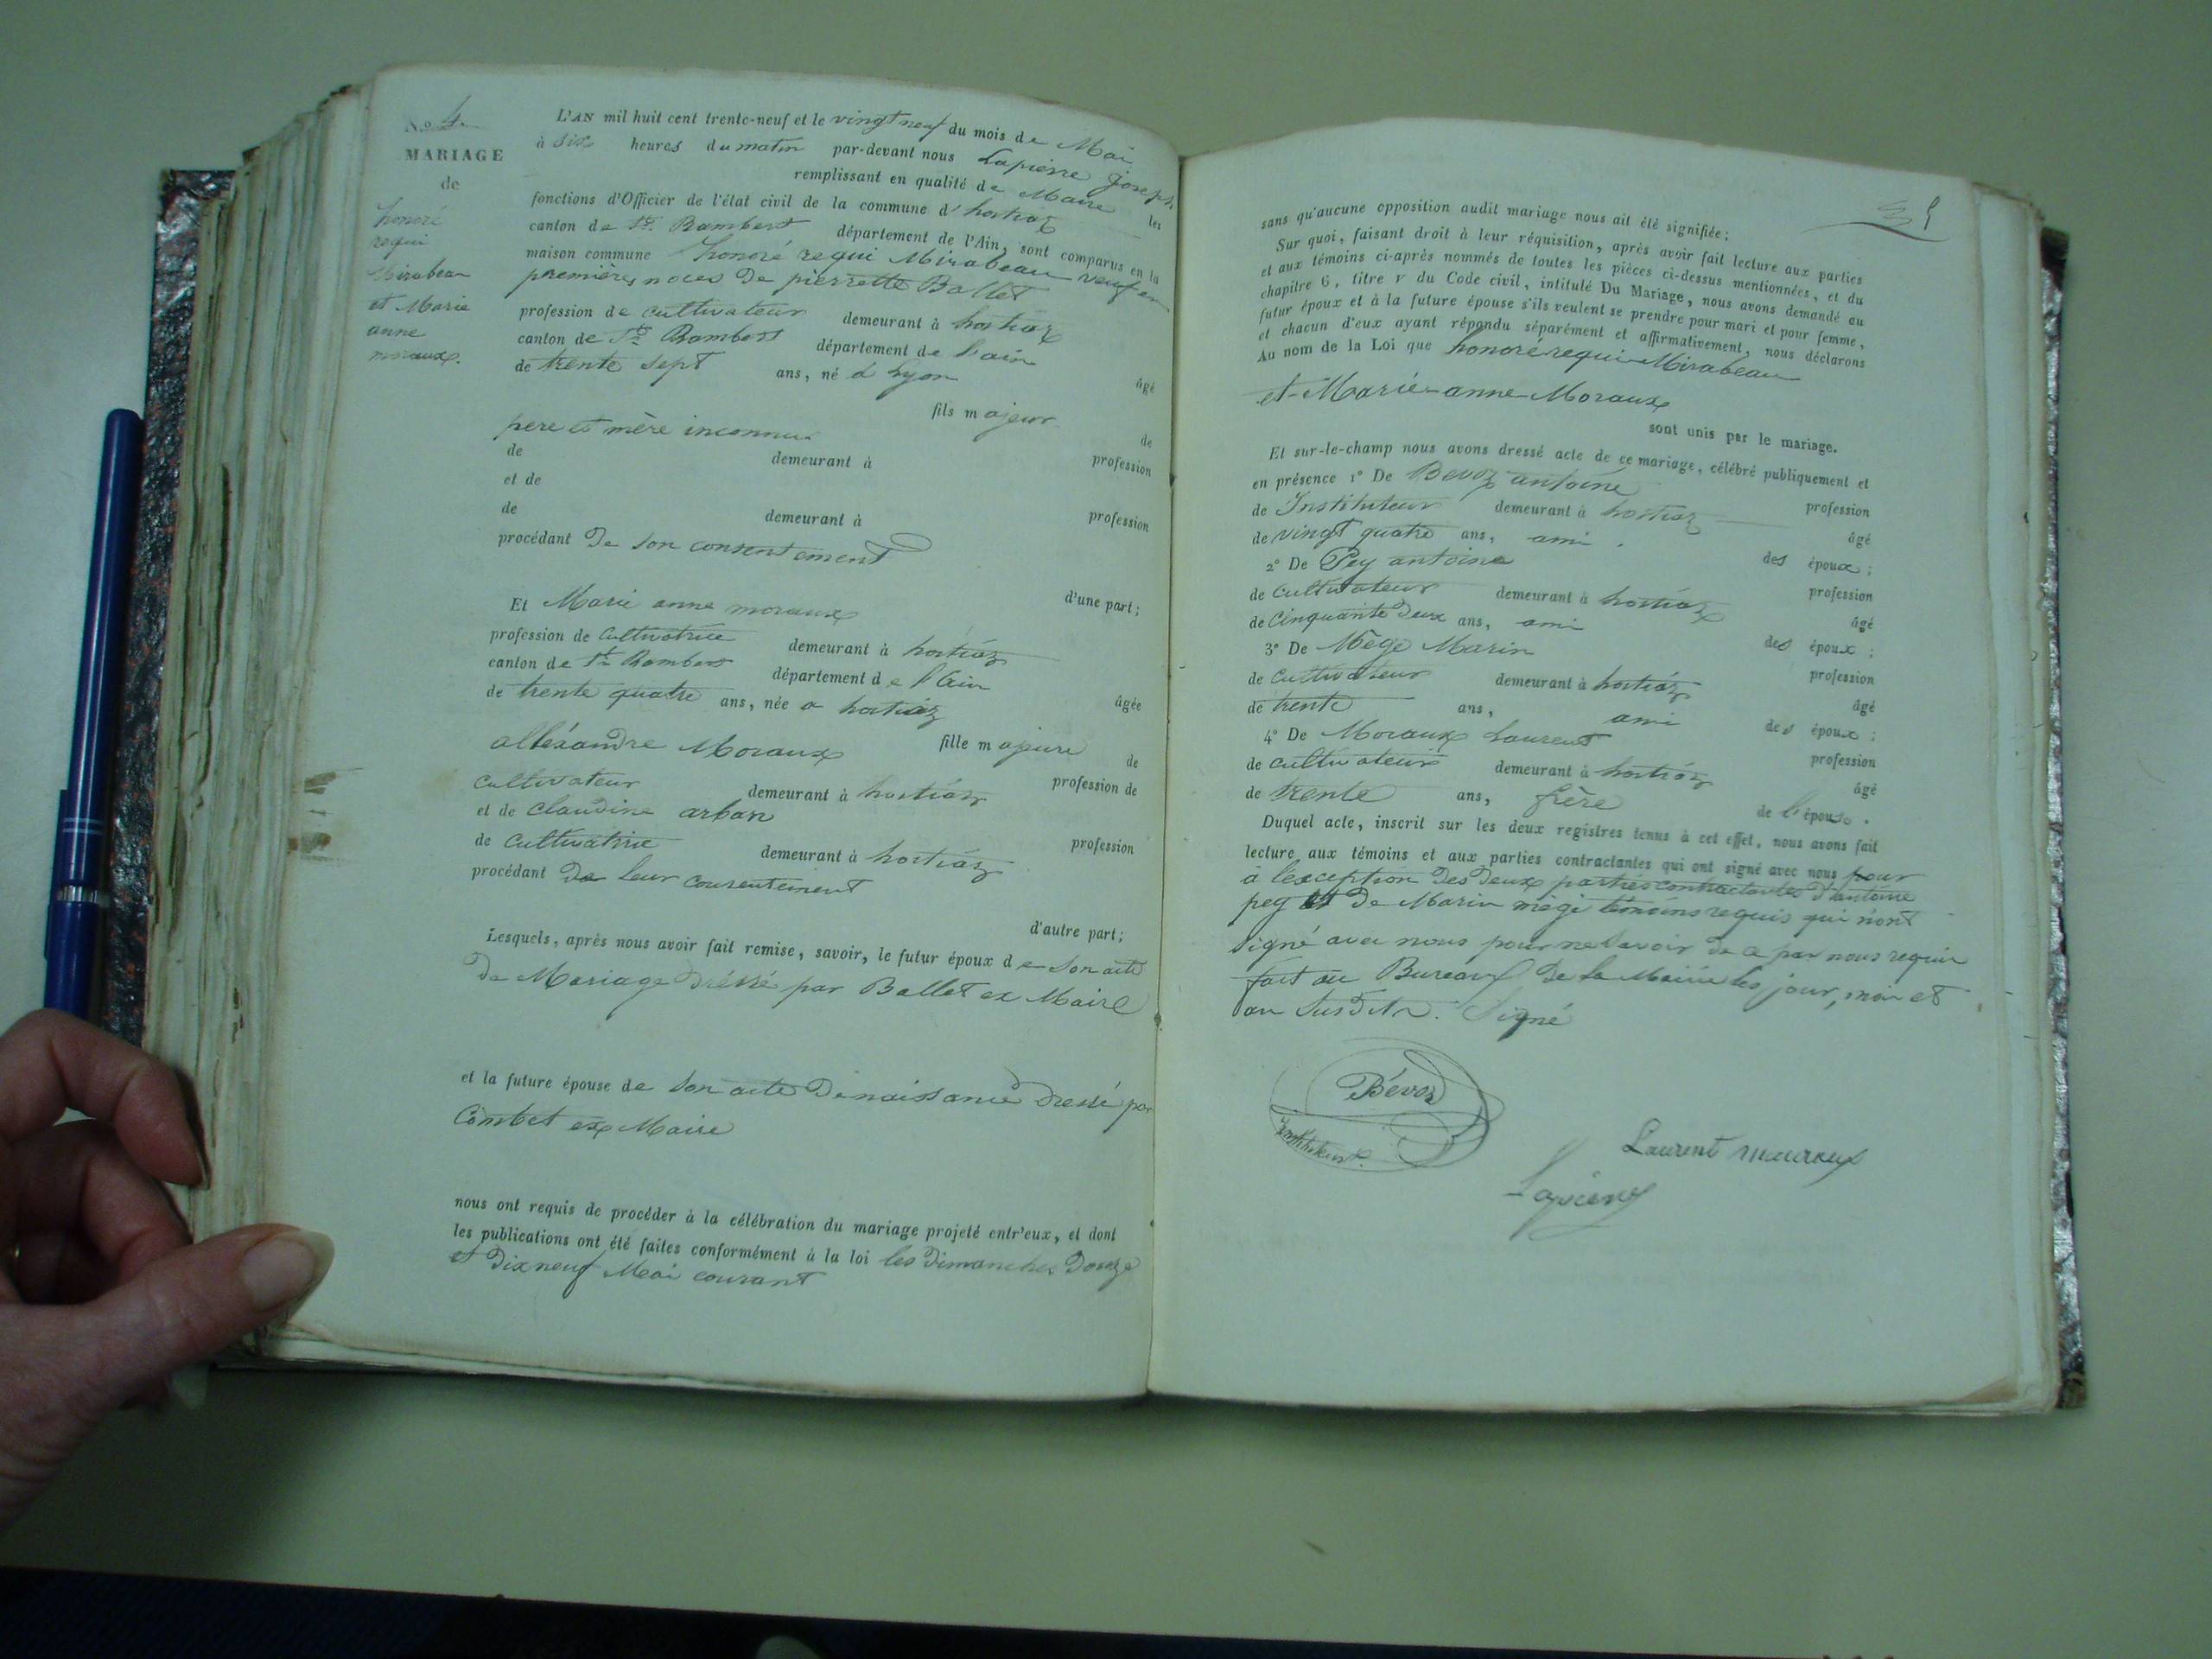 No 4.
MARIAGE
de
honoré
requi
Mirabeau
et Marie
anne
moraux.
L'AN mil huit cent trente-neuf et le vingt neuf du mois de Mai
à six heures du matin par-devant nous Lapierre joseph
remplissant en qualité de Maire les
fonctions d'Officier de l'état civil de la commune d'hostiaz
canton de St. Rambert département de l'Ain, sont comparus en la
maison commune honoré requi Mirabeau veuf en
premières noces de pierrette Ballet
profession de cultivateur demeurant à hostiaz
canton de St. Rambert département de l'ain âgé
de trente sept ans, né à Lyon
fils majeur de
pere et mère inconnus profession
de demeurant à
et de profession
de demeurant à
procédant de son consentement
d'une part;
Et Marie anne moraux
profession de cultivatrice demeurant à hostiaz
canton de St. Rambert département de l'Ain âgée
de trente quatre ans, née a hostiaz
fille majeure de
alléxandre Moraux profession de
cultivateur demeurant à hostiaz
et de claudine arban profession
de cultivatrice demeurant à hostiaz
procédant de leur consentement
d'autre part;
Lesquels, après nous avoir fait remise, savoir, le futur époux de son acte
de Mariage dréssé par Ballet ex Maire
et la future épouse de son acte de naissance dressé par
Combet ex Maire
nous ont requis de procéder à la célébration du mariage projeté entr'eux, et dont
les publications ont été faites conformément à la loi les dimanches douze
et dix neuf Mai courant
5
sans qu'aucune opposition audit mariage nous ait été signifiée;
Sur quoi, faisant droit à leur réquisition, après avoir fait lecture aux parties
et aux témoins ci-après nommés de toutes les pièces ci-dessus mentionnées, et du
chapitre 6, titre v du Code civil, intitulé Du Mariage, nous avons demandé au
futur époux et à la future épouse s'ils veulent se prendre pour mari et pour femme,
et chacun d'eux ayant répondu séparément et affirmativement, nous déclarons
Au nom de la Loi que honoré requi Mirabeau
et Marie-anne-Moraux
sont unis par le mariage.
Et sur-le-champ nous avons dressé acte de ce mariage, célébré publiquement et
en présence 1° De Bevoz antoine profession
de Instituteur demeurant à hostiaz âgé
de vingt quatre ans, ami des époux;
2° De Pey antoine profession
de cultivateur demeurant à hostiaz âgé
de cinquante deux ans, ami des époux;
3° De Mège Marin profession
de cultivateur demeurant à hostiaz âgé
de trente ans, ami des époux;
4° De Moraux Laurent profession
de cultivateur demeurant à hostiaz âgé
de trente ans, frère de l'épouse.
Duquel acte, inscrit sur les deux registres tenus à cet effet, nous avons fait
lecture aux témoins et aux parties contractantes qui ont signé avec nous pour
à l'exception des deux parties contractantes d'antoine
pey et de Marin mège témoins requis qui n'ont
signé avec nous pour ne savoir de ce par nous requis
fait au Bureau de la Mairie les jour, moi et
an susdits. Signé
Bévoz
Instituteur.
Laurent mouraux
Lapierre